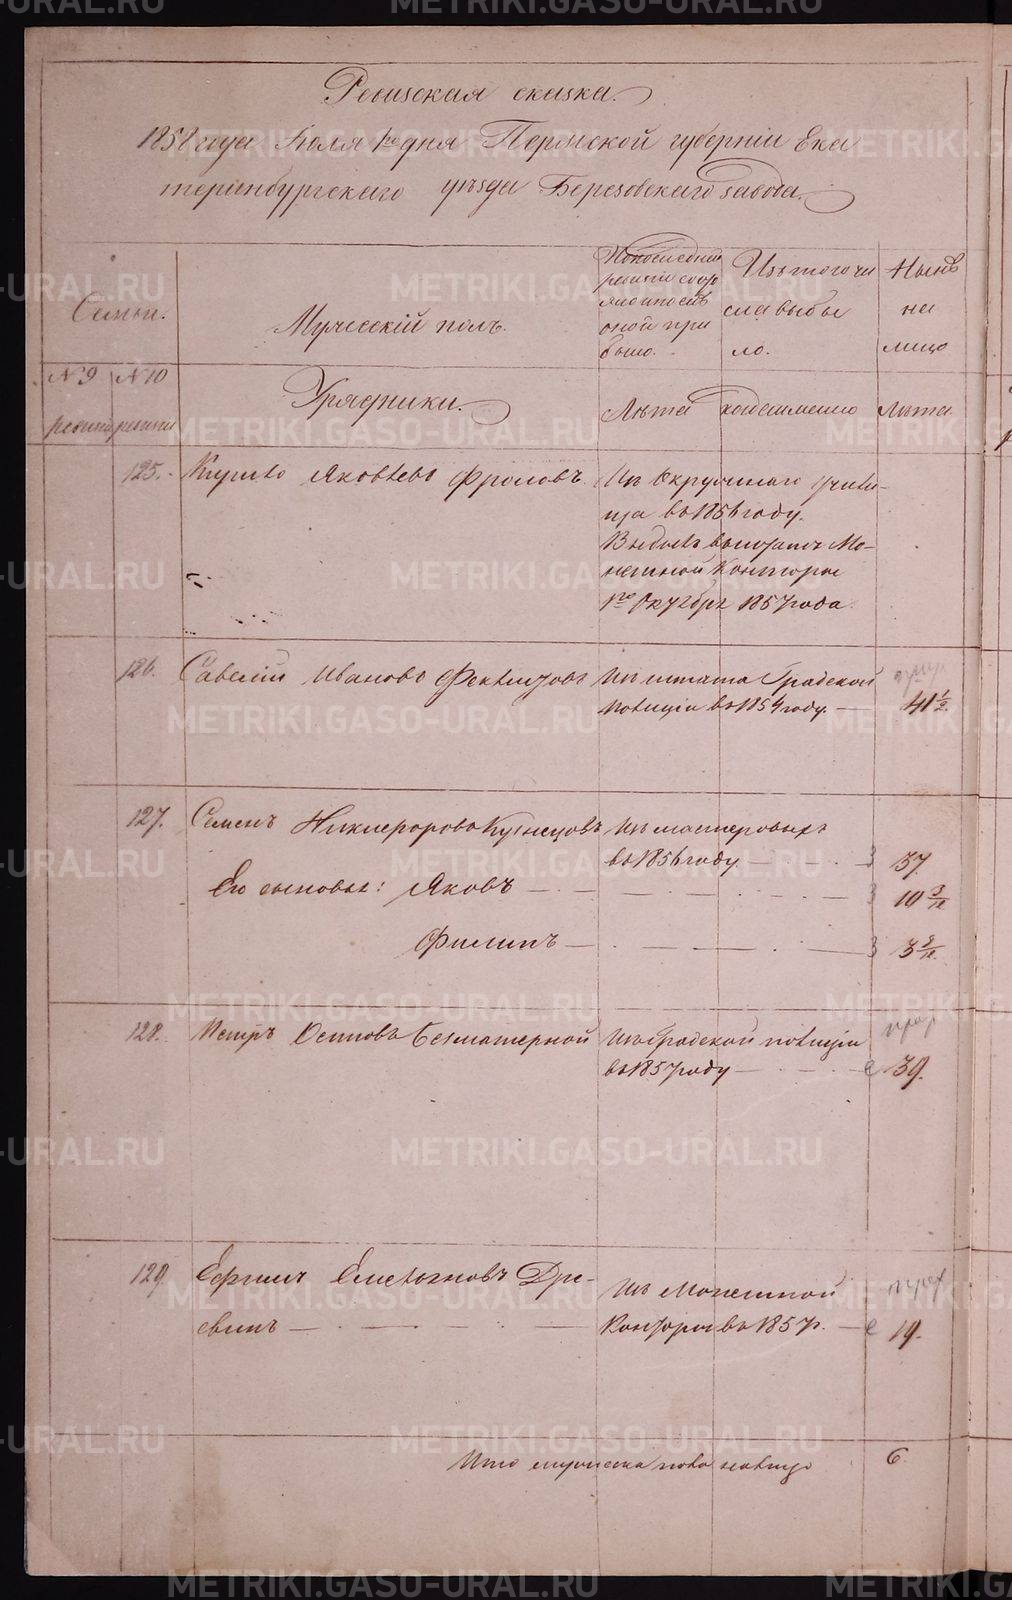 Ревизская сказка.
1858 года Іюля 1го дня Пермской губерніи Ека
теринбургскаго уѣзда Березовскаго завода.
Семьи.
Мужескій полъ.
По последней
ревизіи
оной при
было.
Изъ того чи
сла выбы
ло.
Нынѣ
на
лицо
№ 9
№ 10
ревизіи
ревизіи
Урядники.
Лѣта
когда именно
Лѣта
125.
Яковлевъ Фроловъ
Изъ Окружнаго Учили-
ща въ 1856 году.
въ штатъ Мо-
нетной Конторы
1го Октября 1857 года.
126.
Савелій Ивановъ Феклистовъ
Изъ штата Градской
полиціи въ 1854 году. —
41 ½
127.
Семенъ Никифоровъ Кузнецовъ
Изъ мастеровыхъ
въ 1856 году — 3
37
Его сыновья: Яковъ — 3
10 3/12
Филипъ — 3
3 2/12
128.
Петръ Осиповъ Безматерной
Изъ Градской полиціи
въ 1857 году — с
39.
129.
Ефимъ Емельяновъ Дре-
евинъ —
Изъ Монетной
Конторы въ 1857 г. — с
19.
Итого мужеска пола на лицо
6.
METRIKI.GASO-URAL.RU